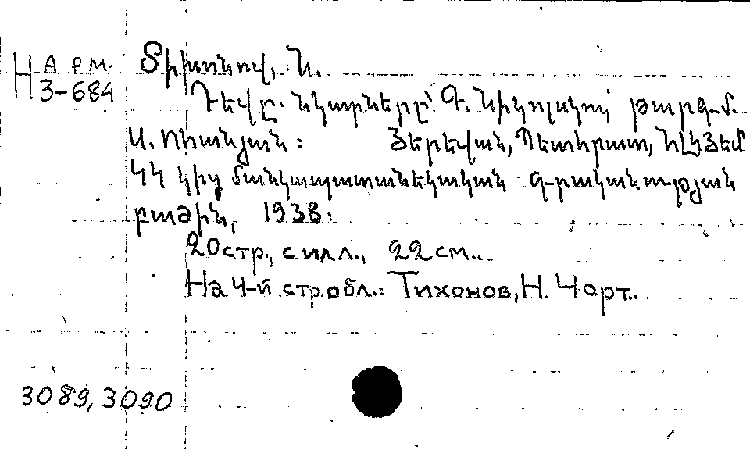 Н Арм. Տիխոնով, Ն.
3-684
Դեվը. նկարները՝ Գ. Նիկոլսկու, թարգմ.
Ս. Ոհանյան: Յերեվան, Պետհրատ, ՀԼԿՅԵՄ
ԿԿ կից մանկապատանեկական գրականության
բաժին, 1938:
20 стр., с илл., 22 см..
На 4-й стр. обл.: Тихонов, Н. Чорт.
3089, 3090